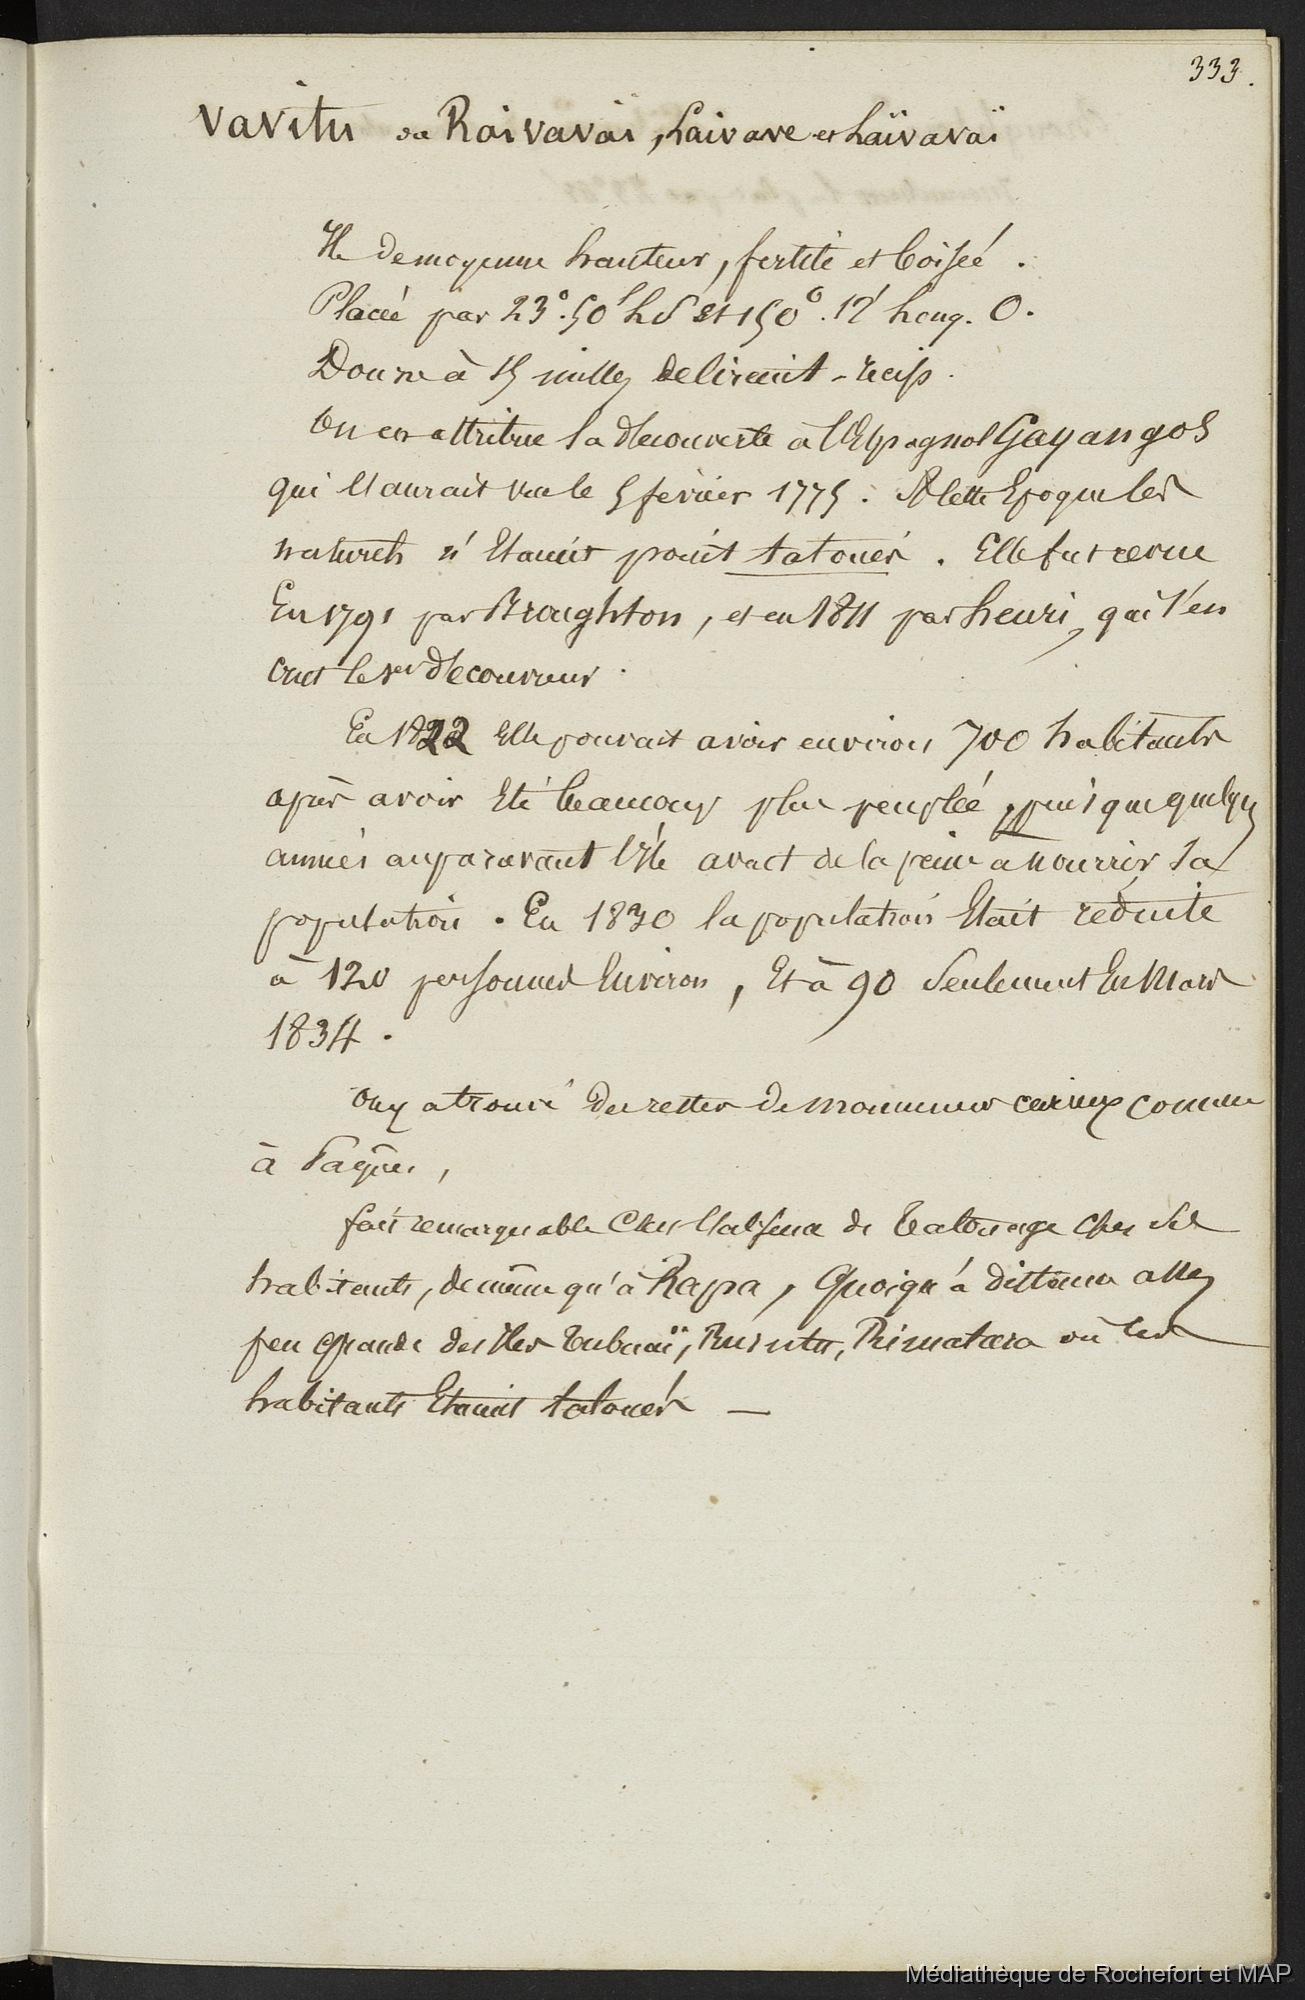 333.
Vavitu ou Raivavaï, Laivave et Laïvavaï
Ile de moyenne hauteur, fertile et boisée.
Placée par 23°.50' L S et 150°.12' Long. O.
Douze à 15 milles de circuit - récifs.
On en attribue la découverte à l'Espagnol Gayangos
qui l'aurait vue le 5 février 1775. A cette Epoque les
naturels n'étaient point tatoués. Elle fut revue
En 1791 par Broughton, et en 1811 par henri, qui s'en
crut le 1er découvreur.
En 1822 Elle pouvait avoir environ 700 habitants
après avoir été beaucoup plus peuplée, puisque quelques
années auparavant l'île avait de la peine à nourrir sa
population. En 1830 la population était réduite
à 120 personnes Environ, et à 90 seulement En Mars
1834.
On y a trouvé des restes de monumens curieux comme
à Pâques,
fait remarquable C'est l'absence de tatouage chez ses
habitants, de même qu'à Rapa, Quoiqu'à distance assez
peu grande des Iles Tubuaï, Rurutu, Rimatara où les
habitants Etaient tatoués —
Médiathèque de Rochefort et MAP